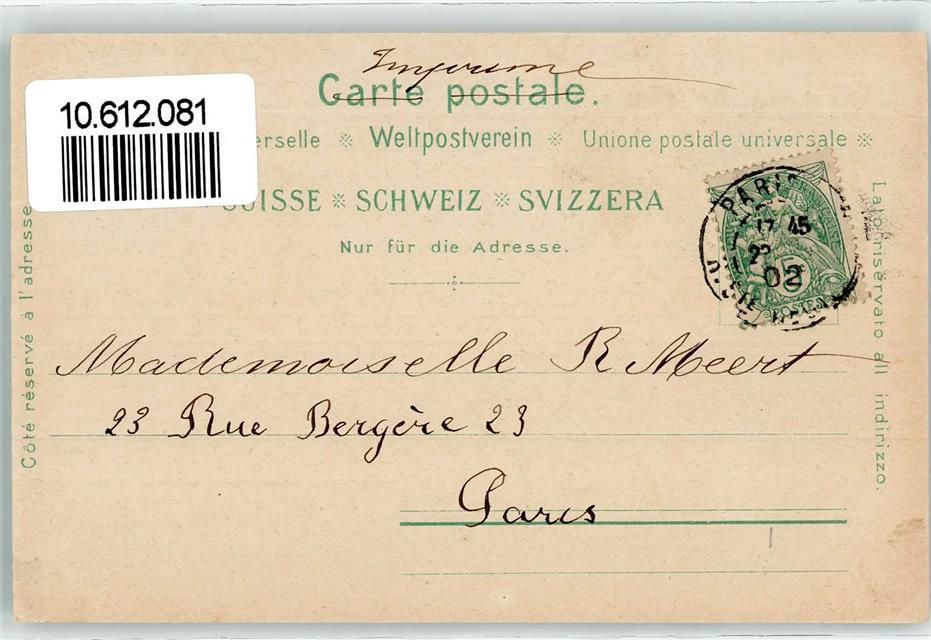 Imprime
Carte postale.
10.612.081
erselle ※ Weltpostverein ※ Unione postale universale ※
SUISSE ※ SCHWEIZ ※ SVIZZERA
Nur für die Adresse.
Côté réservé à l'adresse
Lato riservato all indirizzo.
PARIS
17 45
02
5
POSTES
Mademoiselle R Meert
23 Rue Bergère 23
Paris